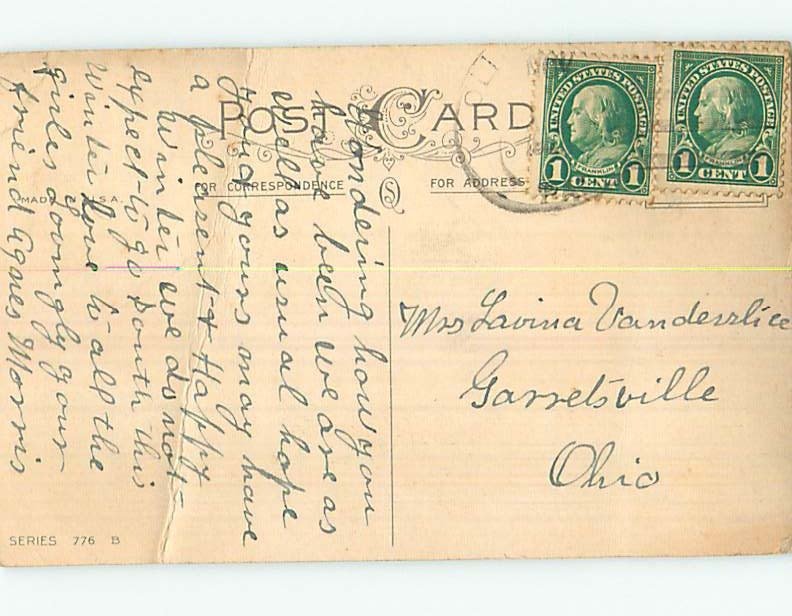 POST CARD
UNITED STATES POSTAGE
FRANKLIN
1 CENT 1
UNITED STATES POSTAGE
FRANKLIN
1 CENT 1
MADE IN U.S.A.
FOR CORRESPONDENCE
FOR ADDRESS
Wondering how you
have been we are as
well as usual hope
you & yours may have
a pleasent & Happy
Winter we do not
expect to go South this
Winter Love to all the
girles Lovingly your
friend Agnes Morris
Mrs Lavina Vanderslice
Garretsville
Ohio
SERIES 776 B